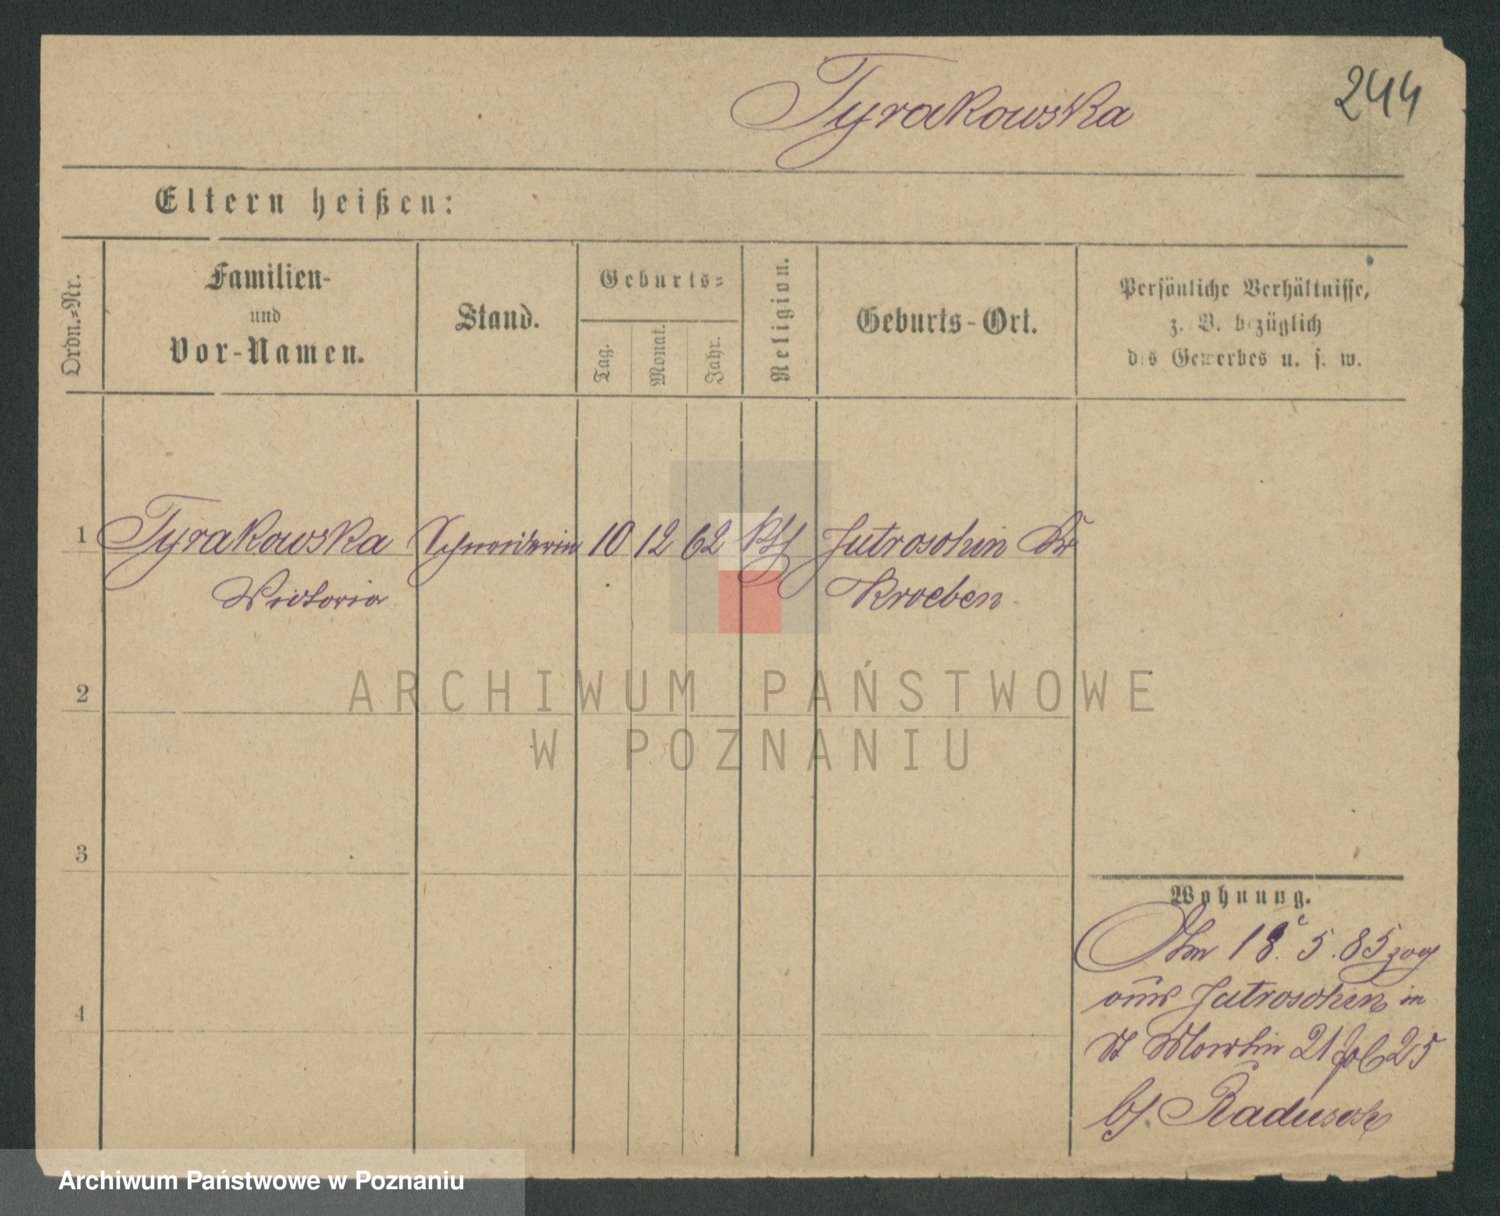 Tyrakowska
244
Eltern heißen:
Ordn.-Nr.
Familien-
und
Vor-Namen.
Stand.
Geburts-
Tag.
Monat.
Jahr.
Religion.
Geburts-Ort.
Persönliche Verhältnisse,
z. B. bezüglich
des Gewerbes u. s. w.
1 Tyrakowska Schneiderin 10 12 62 kth Jutroschin Kr
Victoria Kroeben
2
3
4
Wohnung.
Am 18. 5. 85 zog
aus Jutroschin in
St Martin 21
bz. Radusch
ARCHIWUM PAŃSTWOWE
W POZNANIU
Archiwum Państwowe w Poznaniu